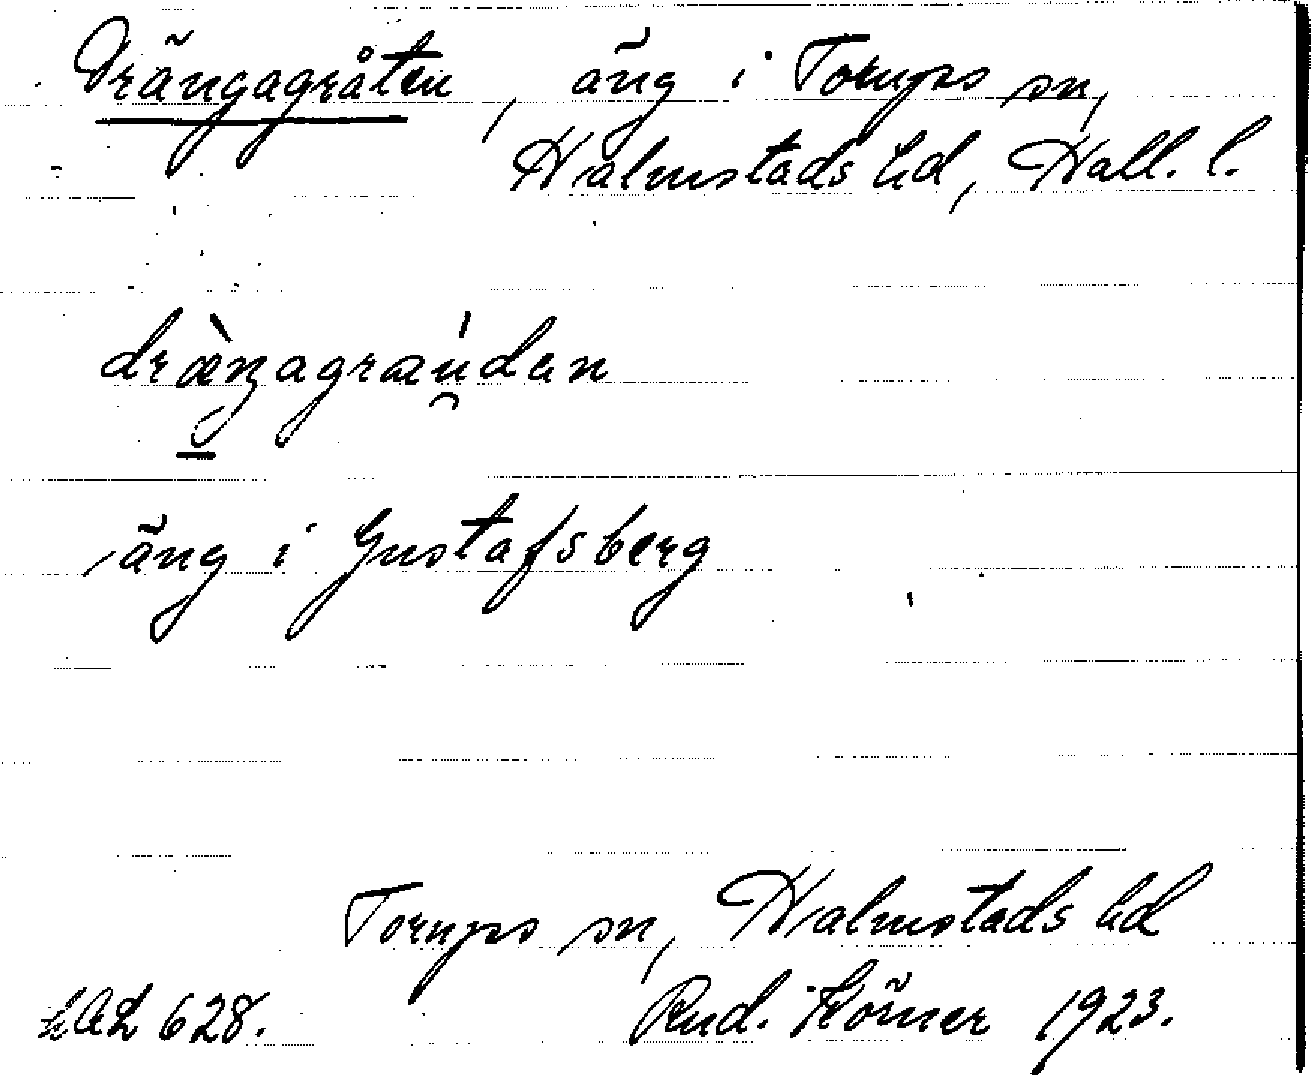 Drängagråten, äng i Tornps sn,
Halmstads hd, Hall. l.
dræ̀ŋagræú̯dan
äng i Gustafsberg
Tornps sn, Halmstads hd
Rud. Körner 1923.
LAL 628.